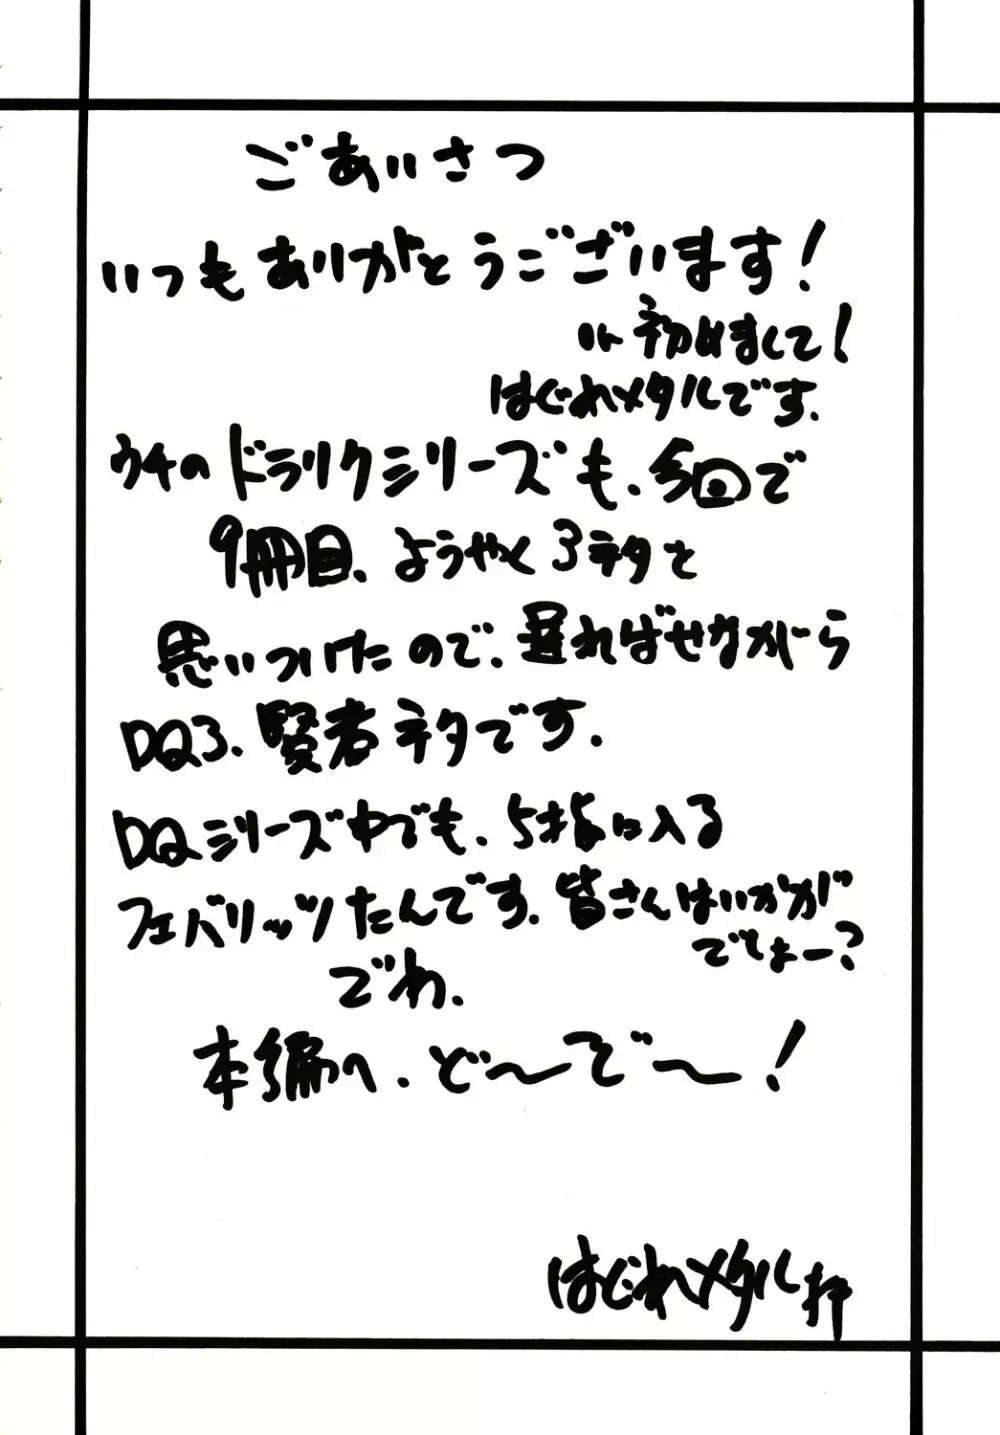 ごあいさつ
いつもありがとうございます!
初めまして!
はぐれメタルです.
ウチのドラクリシリーズも、今回で
9冊目、ようやく3ネタを
思いついたので、遅ればせながら
DQ3、賢者ネタです.
DQシリーズ中でも、5指に入る
フェバリッツたんです.皆さんはいかが
でしょー?
でわ、
本編へ、ど〜ぞ〜!
はぐれメタル 拝